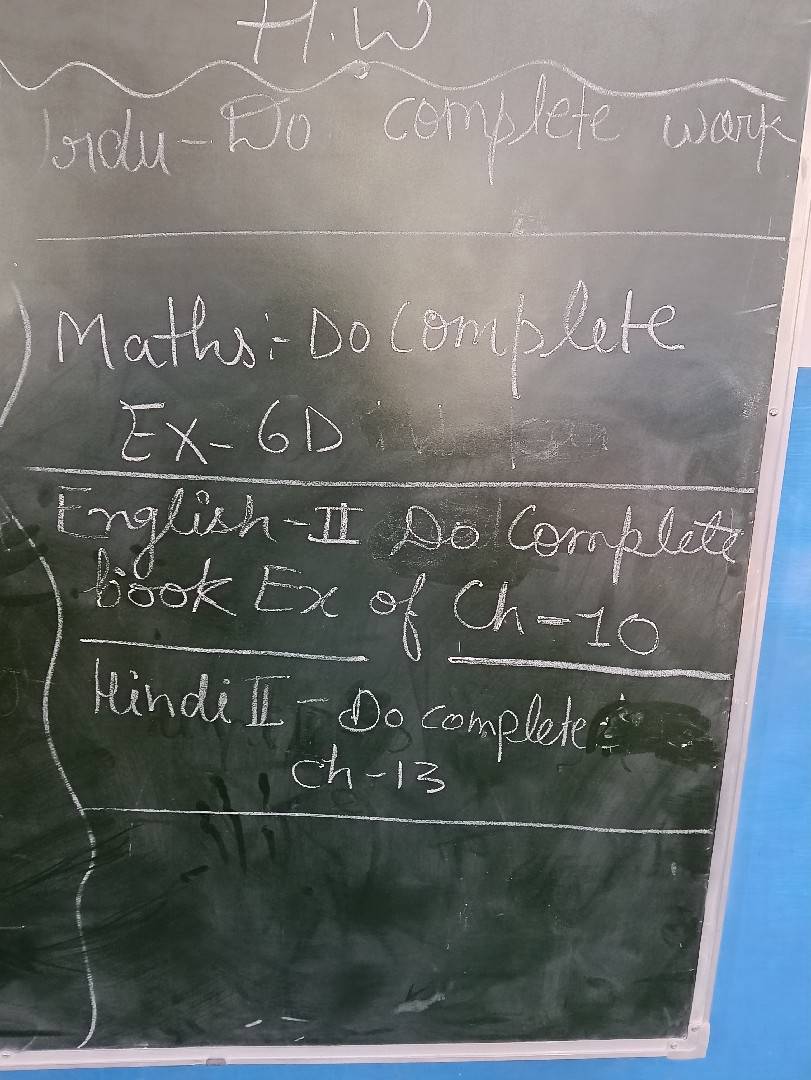 H.W
Urdu - Do complete work
Maths :- Do Complete
Ex - 6D
English - II Do Complete
book Ex of Ch - 10
Hindi II - Do complete
Ch - 13